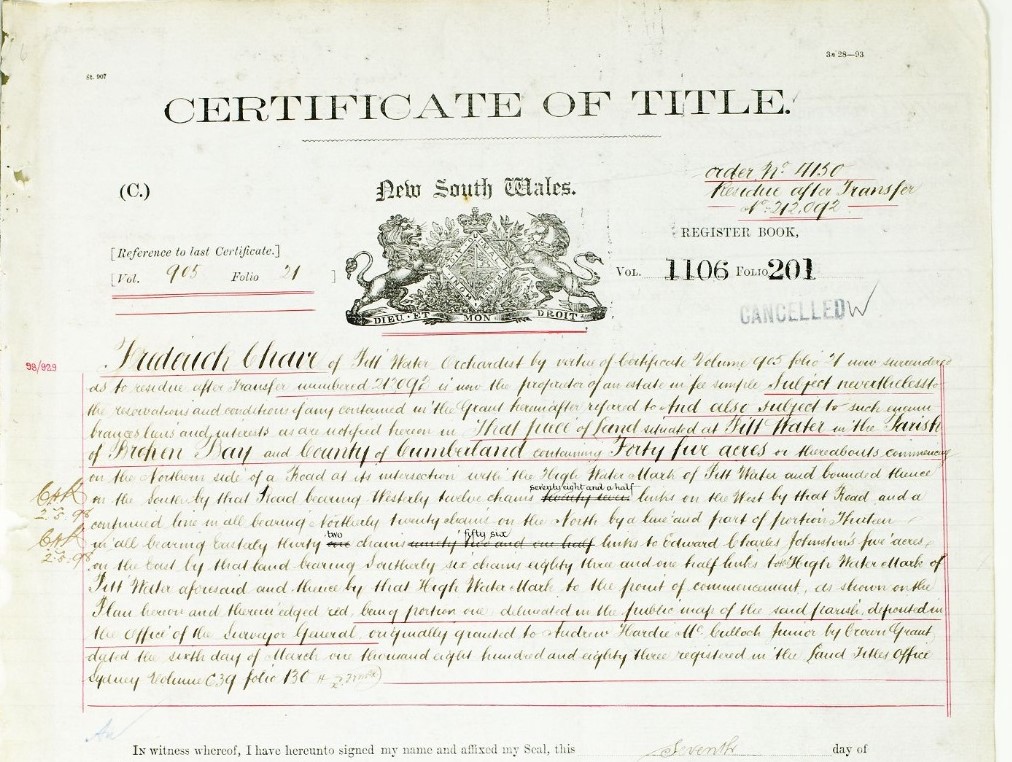 St. 907
3a 28—93
CERTIFICATE OF TITLE.
(C.)
New South Wales.
order No. 4150
Residue after Transfer
No. 212,092
REGISTER BOOK,
[Reference to last Certificate.]
[Vol. 905 Folio 21 ]
DIEU ET MON DROIT
Vol. 1106 Folio 201
CANCELLED
98/929
Frederick Chave of Pitt Water Orchardist by virtue of Certificate Volume 905 folio 21 now surrendered
as to residue after Transfer numbered 212092 is now the proprietor of an estate in fee simple Subject nevertheless to
the reservations and conditions if any contained in the Grant hereinafter referred to And also subject to such encum
brances liens and interests as are notified hereon in That piece of land situated at Pitt Water in the Parish
of Broken Bay and County of Cumberland containing Forty five acres or thereabouts commencing
on the Northern side of a Road at its intersection with the High Water Mark of Pitt Water and bounded thence
seventy eight and a half
on the South by that Road bearing Westerly twelve chains twenty seven links on the West by that Road and a
2.5.96
continued line in all bearing Northerly twenty chains on the North by a line and part of portion Thirteen
two fifty six
in all bearing Easterly thirty one chains ninety two and one half links to Edward Charles Johnston's five acres,
2.5.96
on the East by that land bearing Southerly six chains eighty three and one half links to High Water Mark of
Pitt Water aforesaid and thence by that High Water Mark to the point of commencement, as shown on the
Plan hereon and therein edged red, being portion one delineated in the public map of the said parish deposited in
the Office of the Surveyor General, originally granted to Andrew Hardie McCulloch Junior by Crown Grant
dated the sixth day of March one thousand eight hundred and eighty three registered in the Land Titles Office
Sydney Volume 639 folio 130
In witness whereof, I have hereunto signed my name and affixed my Seal, this Seventh day of